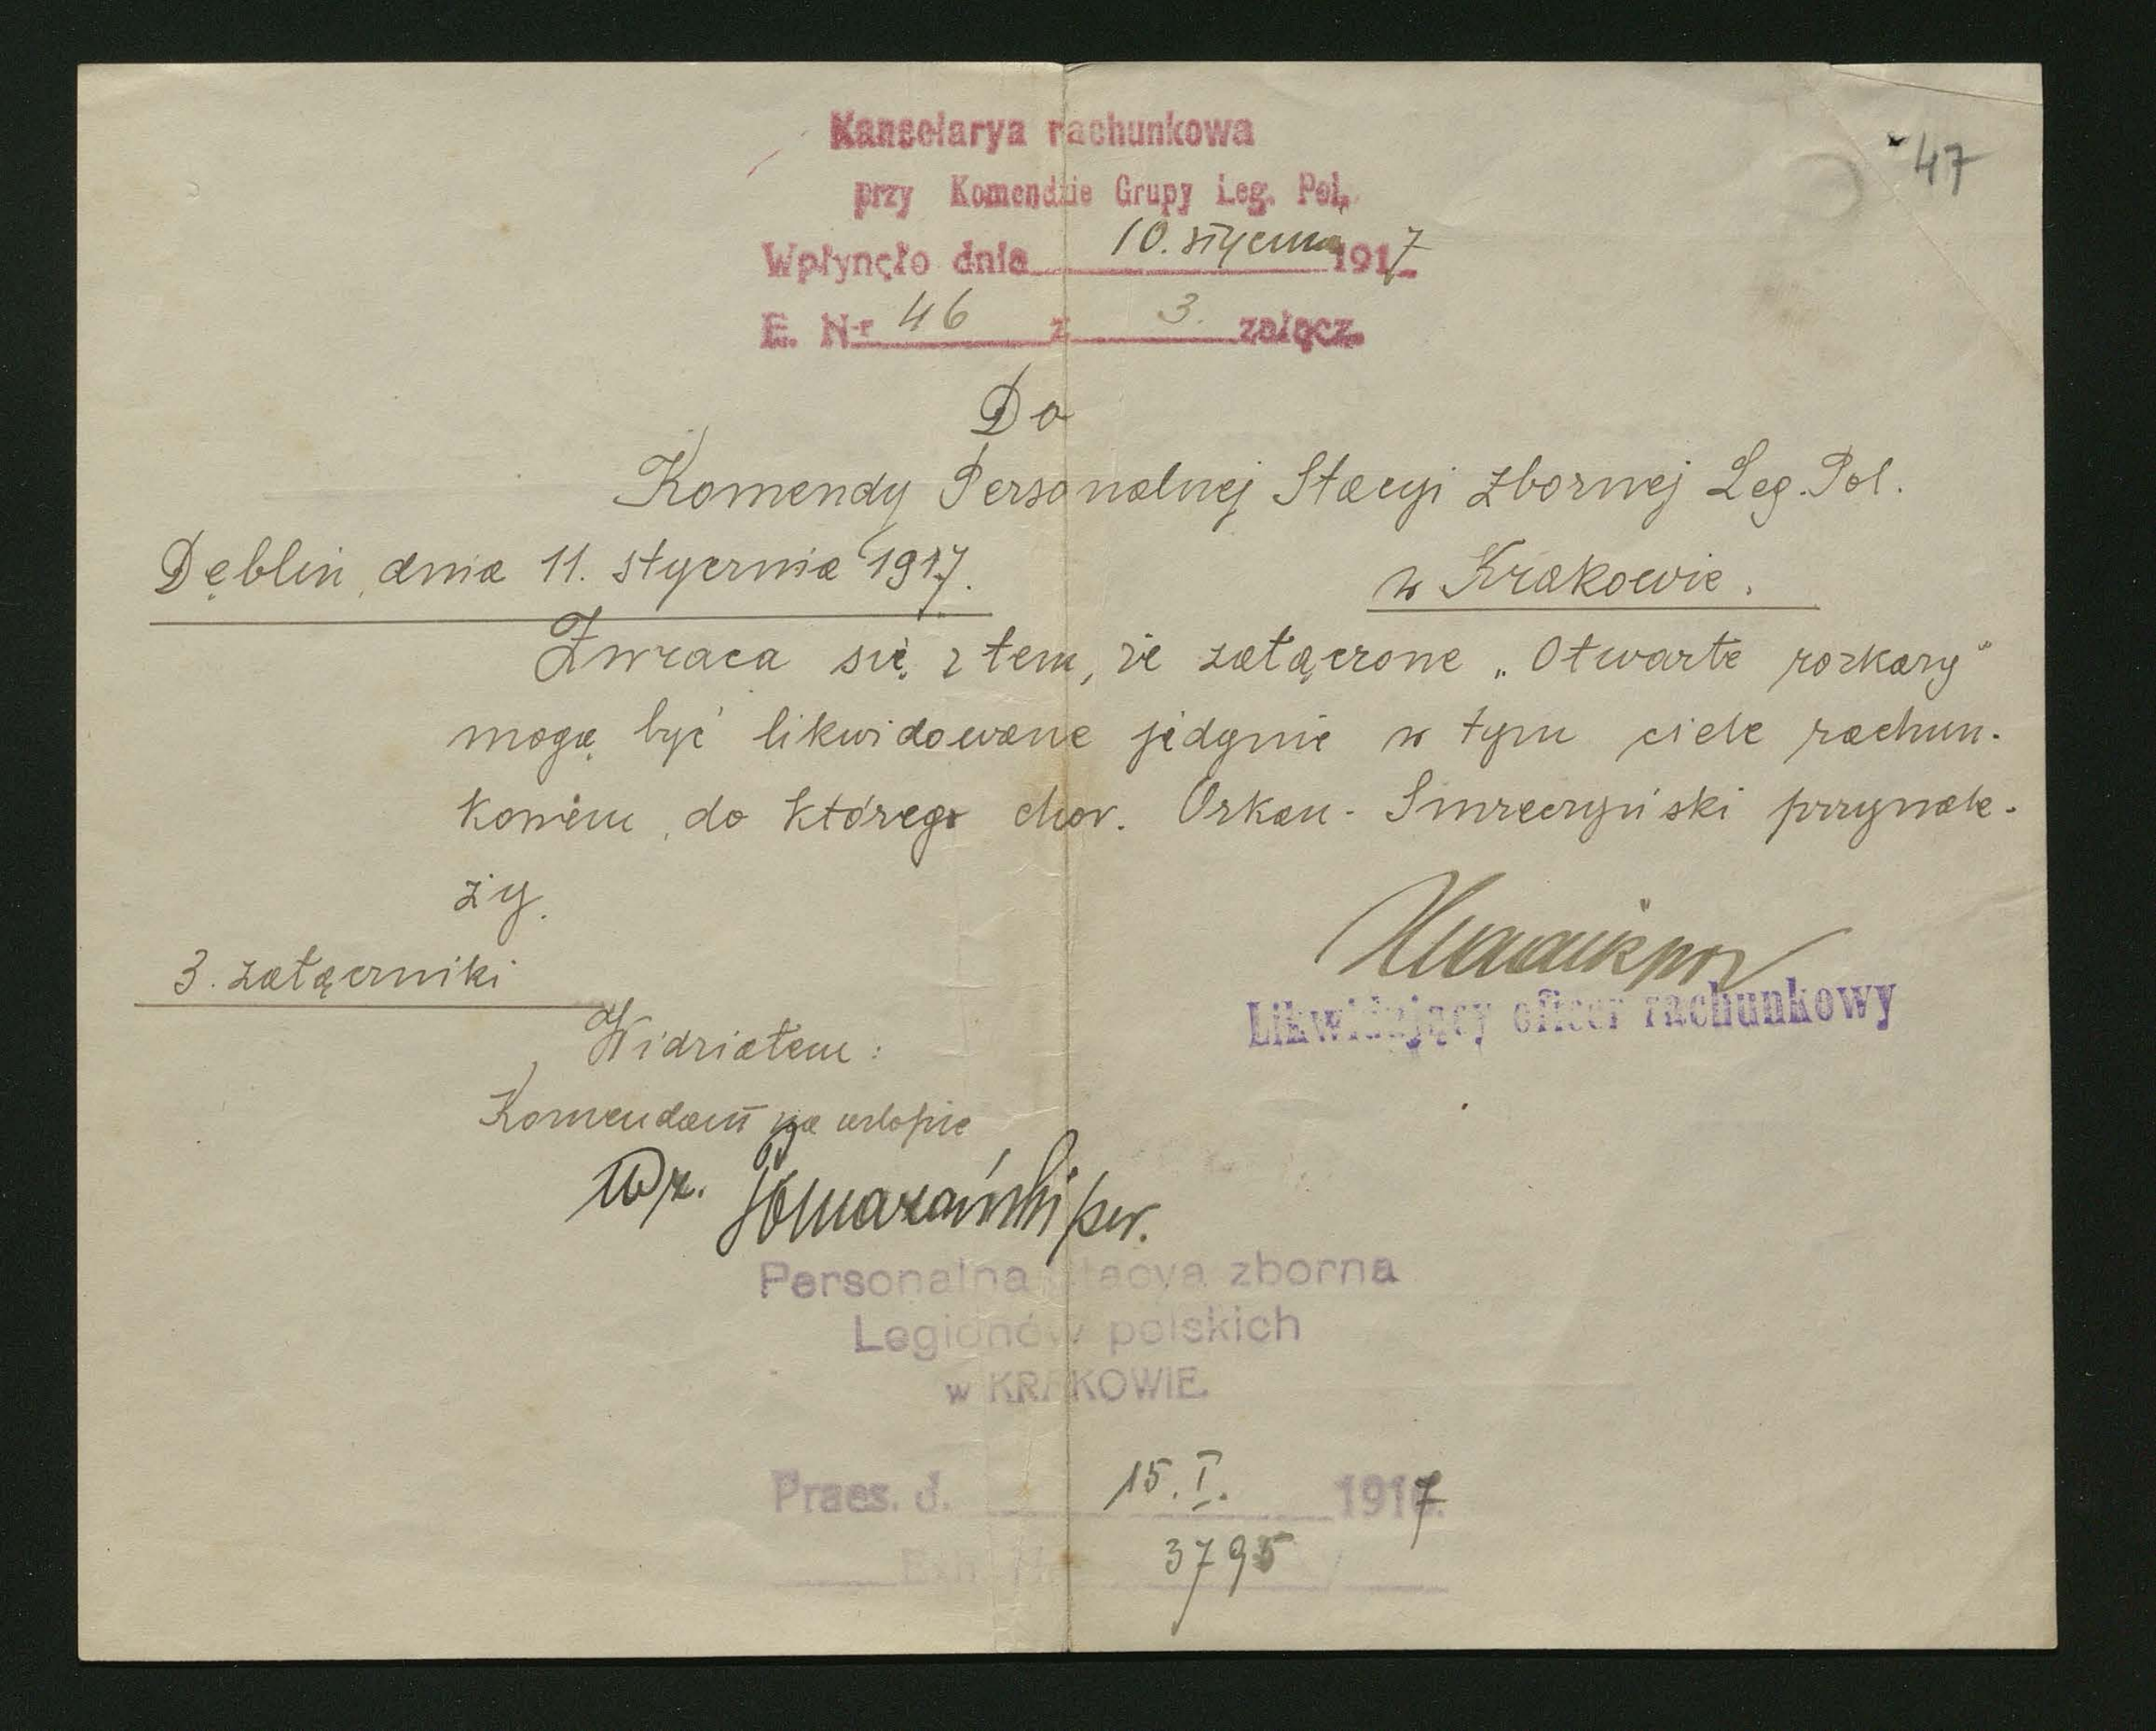 47
Kancelarya rachunkowa
przy Komendzie Grupy Leg. Pol.
Wpłynęło dnia 10. stycznia 1917
E. Nr 46 z 3. załącz.
Do
Komendy Personalnej Stacyi Zbornej Leg. Pol.
Dęblin, dnia 11. stycznia 1917.
w Krakowie.
Zwraca się z tem, że załączone „Otwarte rozkazy"
mogą być likwidowane jedynie w tym ciele rachun-
kowem, do którego chor. Orkan-Smreczyński przynale-
ży.
3. załączniki
Likwidujący oficer rachunkowy
Widziałem:
Komendant na urlopie
wz.
Personalna Stacya zborna
Legionów polskich
w KRAKOWIE.
Praes. d. 15. I. 1917.
Exh. Nr 3795